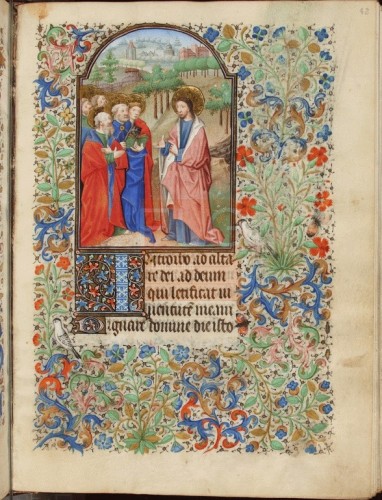 Introibo ad alta
re dei ad deum
qui letificat iu
uentutē meam
Dignare domine die isto